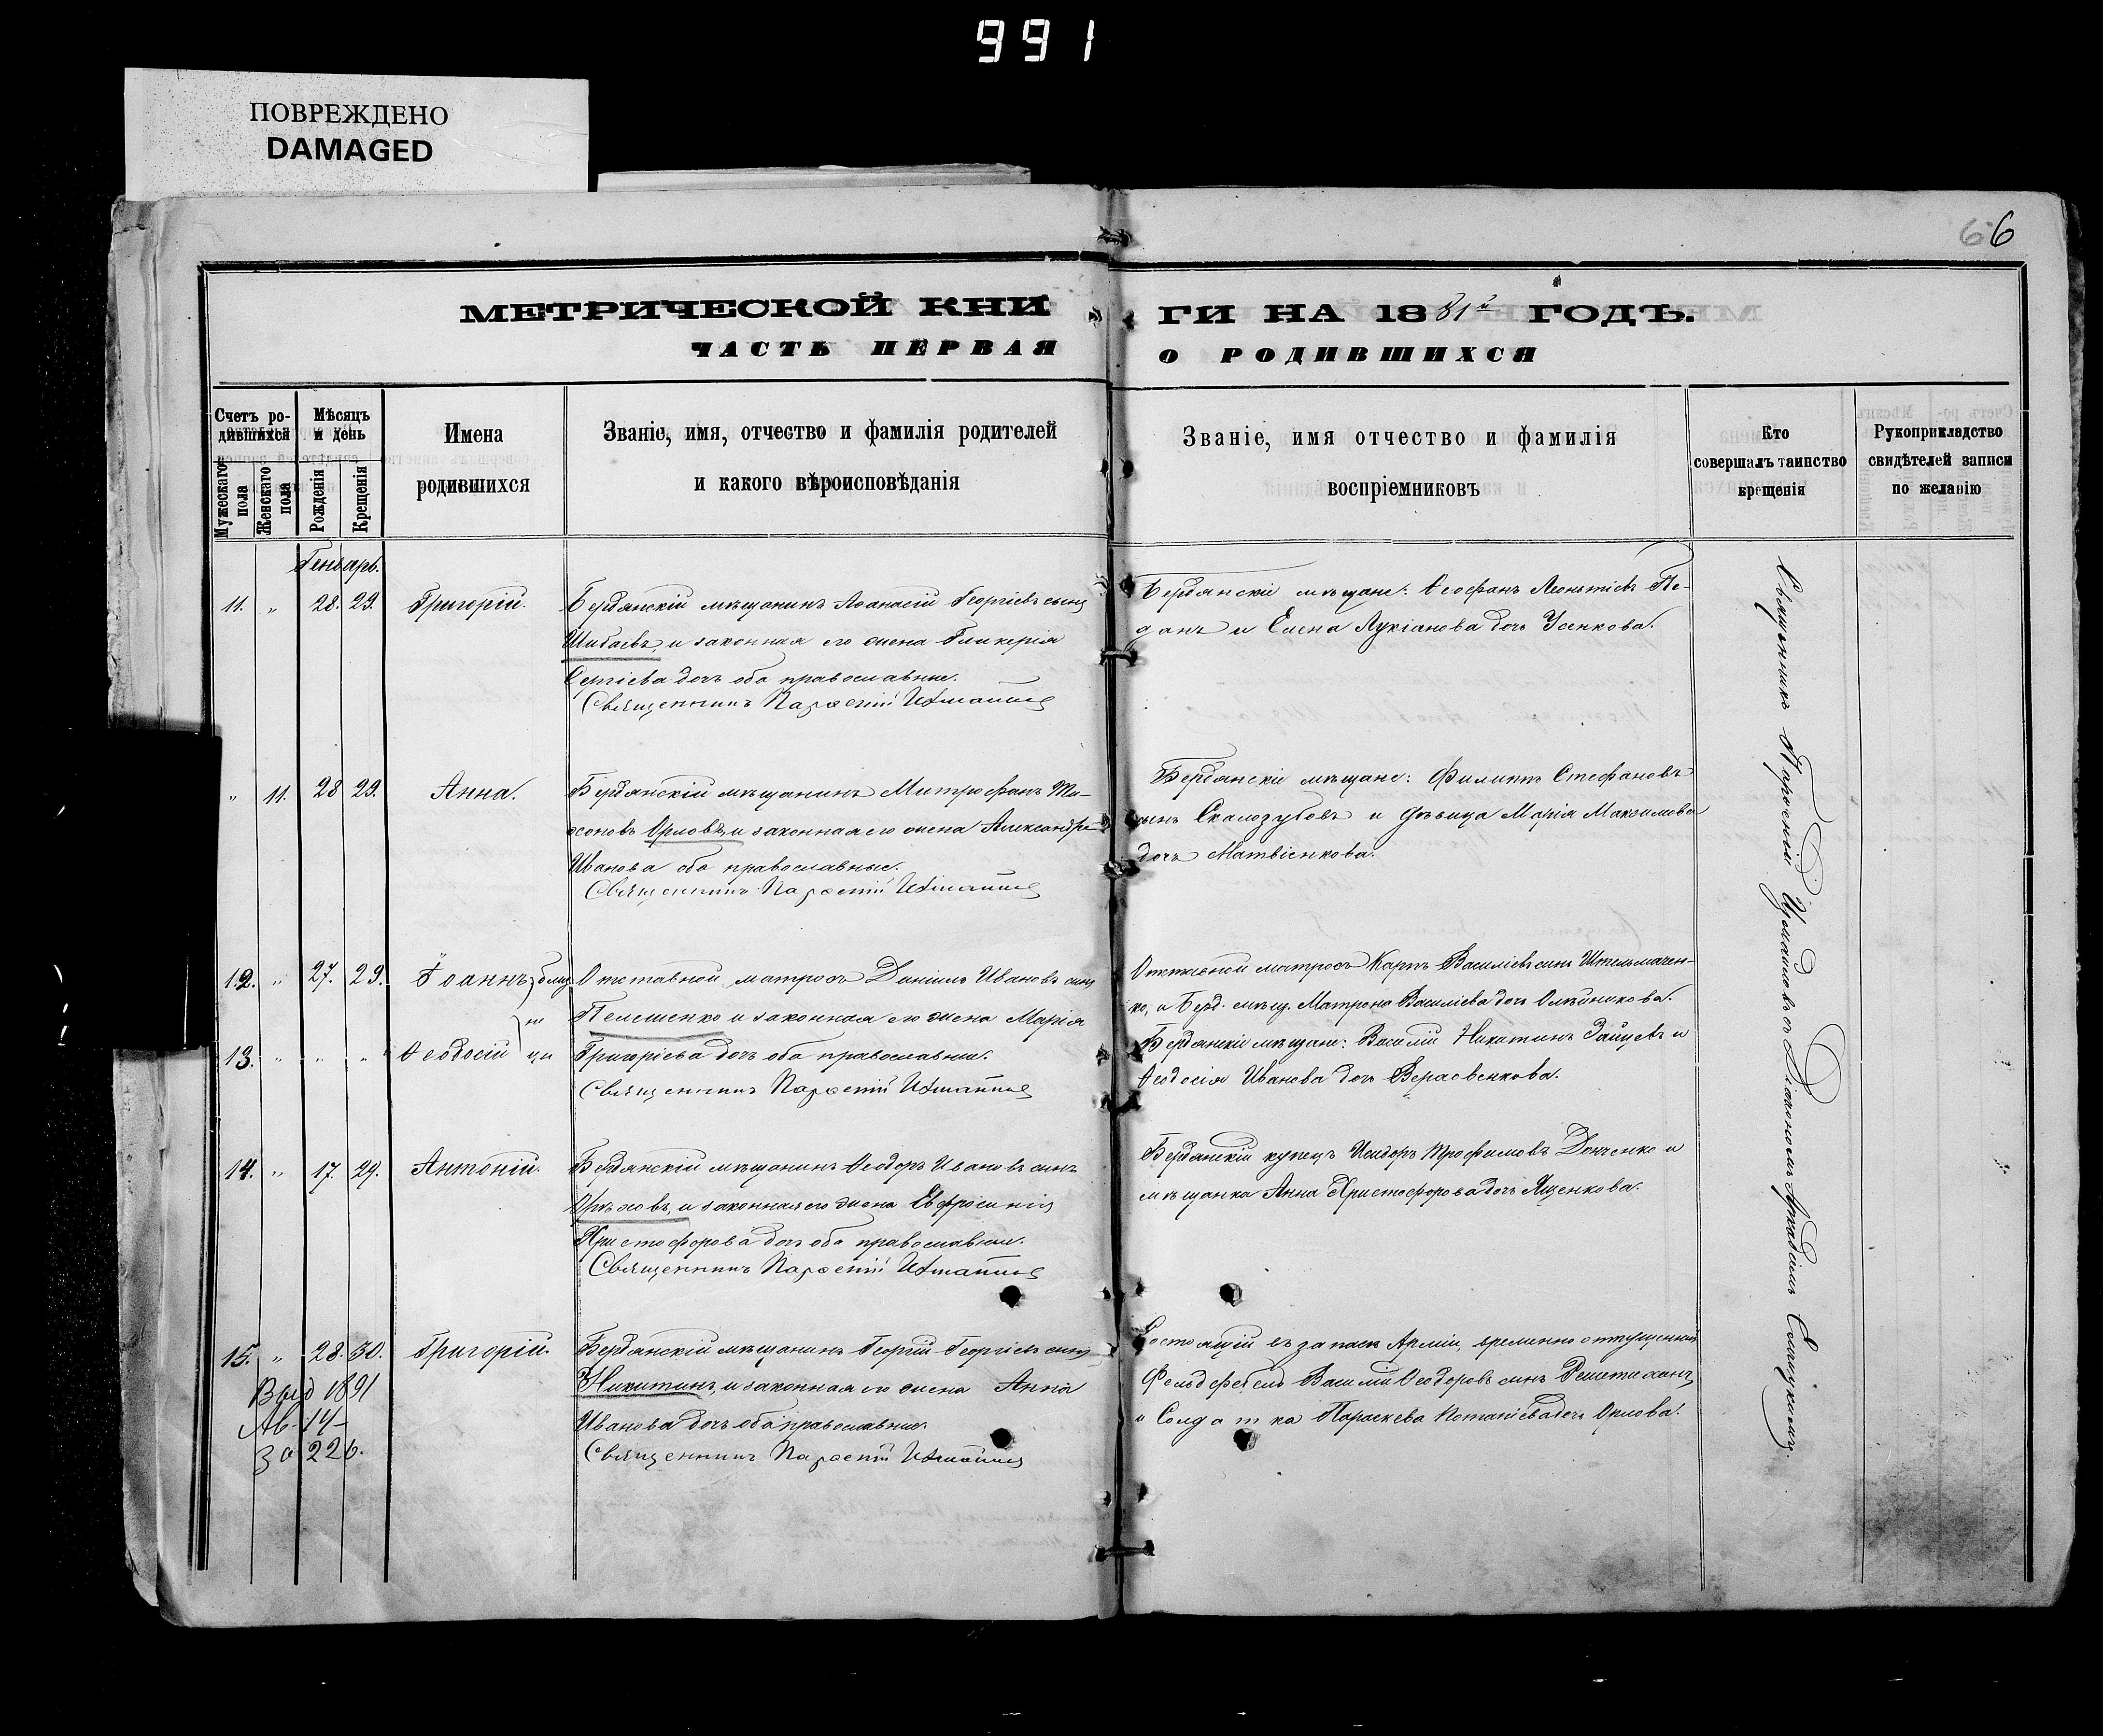 991
ПОВРЕЖДЕНО
DAMAGED
6 6
МЕТРИЧЕСКОЙ КНИ ГИ НА 1881й ГОДЪ.
ЧАСТЬ ПЕРВАЯ О РОДИВШИХСЯ
Счетъ ро-
дившихся
Мужескаго пола
Женскаго пола
Мѣсяцъ
и день
Рожденія
Крещенія
Имена
родившихся
Званіе, имя, отчество и фамилія родителей
и какого вѣроисповѣданія
Званіе, имя отчество и фамилія
воспріемниковъ
Кто
совершалъ таинство
крещенія
Рукоприкладство
свидѣтелей записи
по желанію
Генварь.
11. " 28. 29. Григорій.
Бердянскій мѣщанинъ Аѳанасій Георгіевъ сынъ
Шибаевъ, и законная его жена Гликерія
Сергіева дочь оба православные.
Священникъ Парѳеній
Бердянскіе мѣщане: Ѳеофанъ Леонтіевъ Пе-
данъ и Елена Лукіанова дочь Усенкова.
" 11. 28 29. Анна.
Бердянскій мѣщанинъ Митрофанъ Ти-
хоновъ Орловъ, и законная его жена Александра
Иванова оба православные.
Священникъ Парѳеній
Бердянскіе мѣщане: Филиппъ Стефановъ
сынъ Скалозубовъ и дѣвица Марія Максимова
дочь Матвіенкова.
12. " 27. 29. Іоаннъ близ
не
13. " " " Ѳеодосій цы
Отставной матросъ Даніилъ Ивановъ сынъ
Пелешенко и законная его жена Марія
Григоріева дочь оба православные.
Священникъ Парѳеній
Отставной матросъ Карпъ Василіевъ сынъ Шпельмачен-
ко, и Берд. мѣщ. Матрона Василіева дочь Олѣйникова.
Бердянскіе мѣщане: Василій Никитинъ Зайцевъ и
Ѳеодосія Иванова дочь
14. " 17. 29. Антоній.
Бердянскій мѣщанинъ Ѳеодоръ Ивановъ сынъ
Орѣховъ, и законная его жена Евфросинія
Христофорова дочь оба православные.
Священникъ Парѳеній
Бердянскій купецъ Исидоръ Трофимовъ Донченко и
мѣщанка Анна Христофорова дочь Ященкова.
15. " 28. 30. Григорій.
Выд 1891
Ав. 14
За 226.
Бердянскій мѣщанинъ Георгій Георгіевъ сынъ
Никитинъ, и законная его жена Анна
Иванова дочь оба православные.
Священникъ Парѳеній
Состоящій въ запасѣ Арміи, временно отпущенный
Фельдфебель Василій Ѳеодоровъ сынъ
и Солдатка Параскева Потапіева дочь Орлова.
Священникъ Парѳеній съ Діакономъ Аркадіемъ